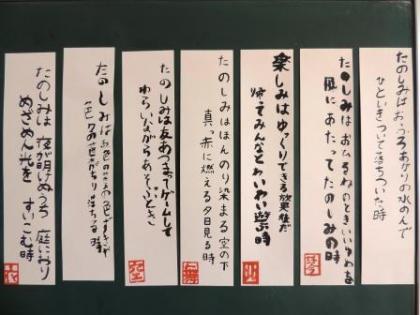 たのしみはおふろあがりの水のんで
ひといきついて落ちついた時
たのしみは おひるねのときいいゆめを
風にあたってたのしみの時
楽しみはゆっくりできる放課後だ
帰てみんなとわいわい遊ぶ時
たのしみはほんのり染まる空の下
真っ赤に燃える夕日見る時
たのしみは友あつまってゲームして
わらいながらあそぶとき
たのしみは
落ちる時
たのしみは 夜が明けぬうち 庭におり
めざめん光を すいこむ時